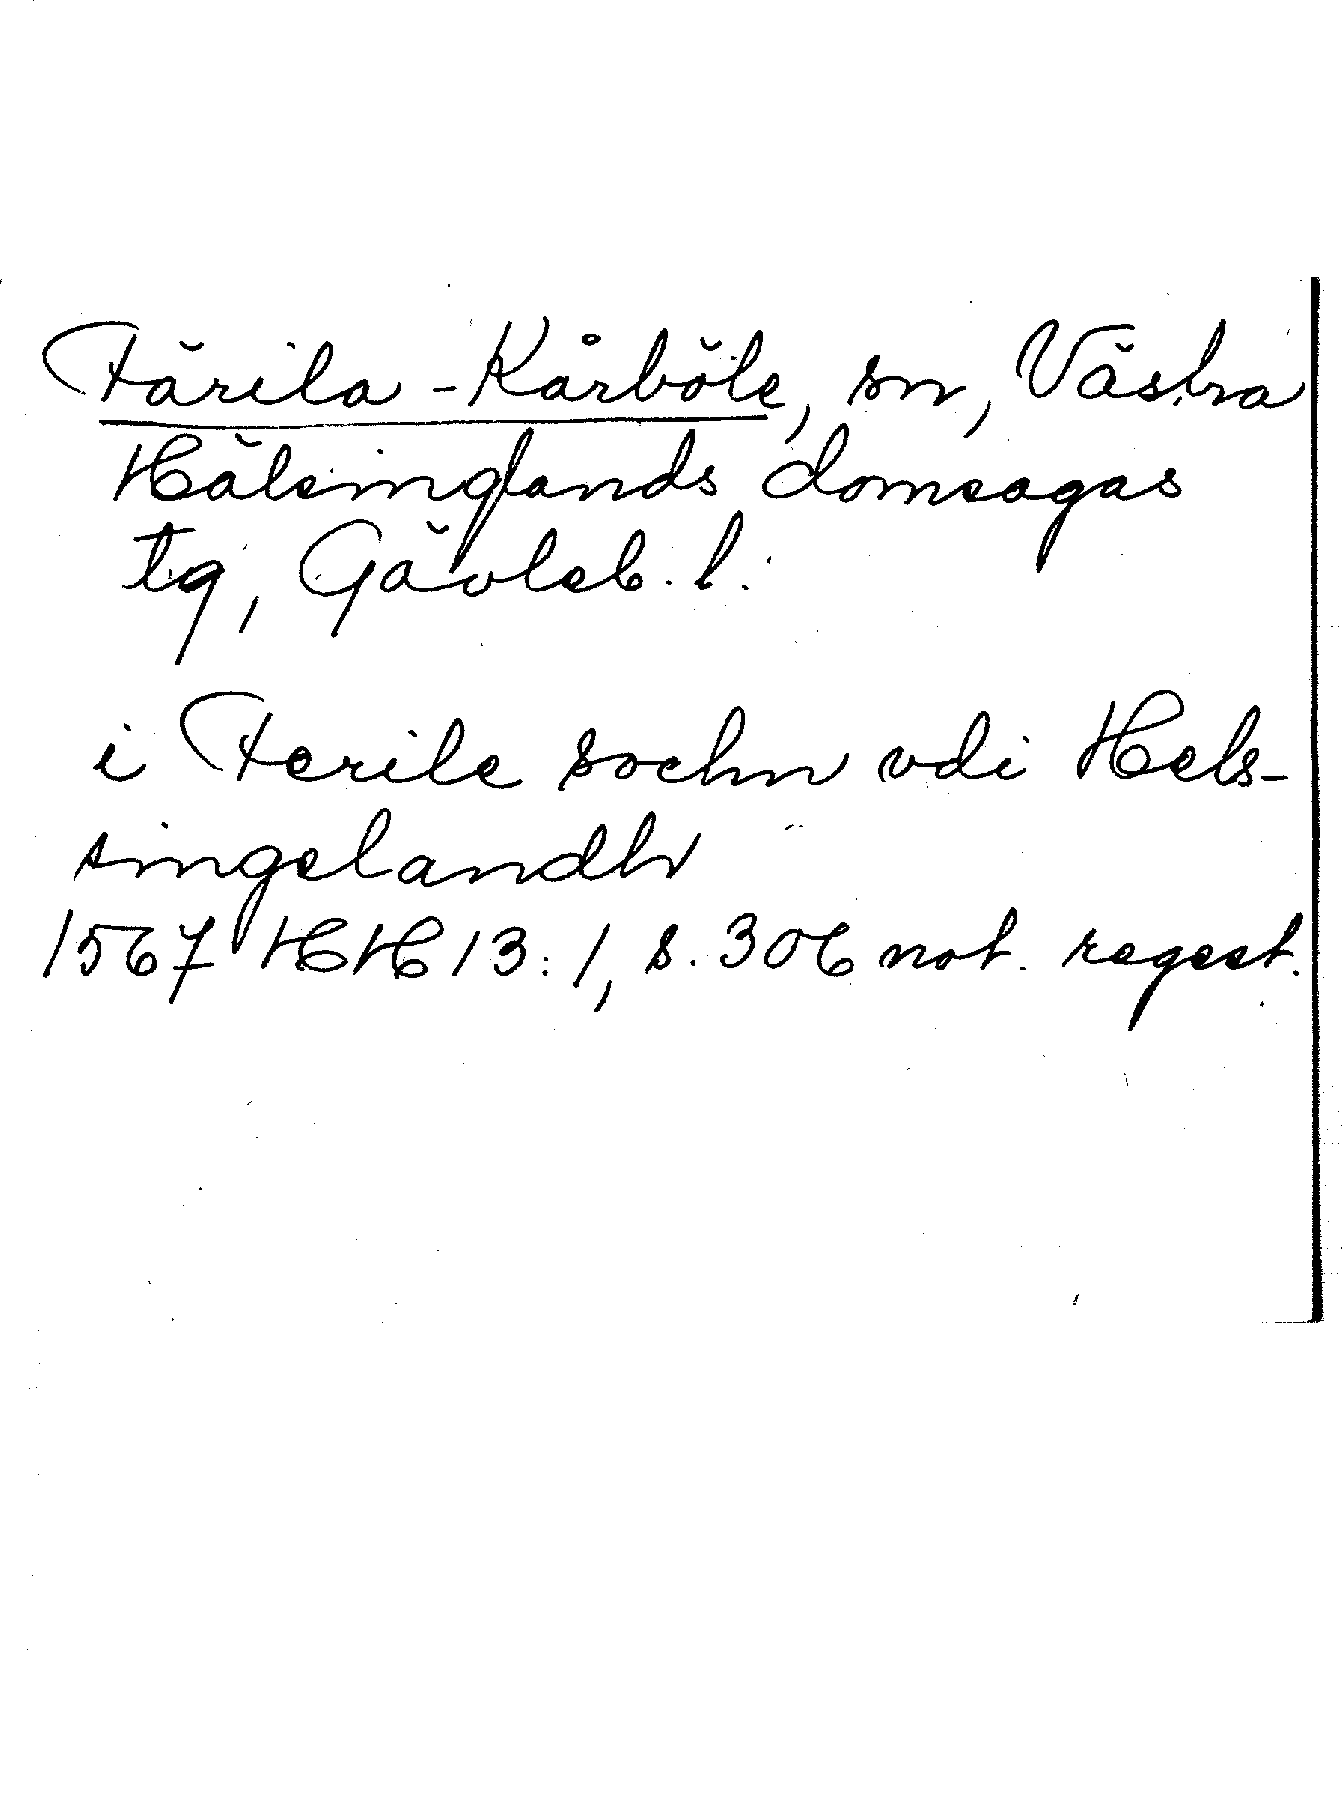 Färila-Kårböle, sn, Västra
Hälsinglands domsagas
tg, Gävleb. l.
i Ferile sochn vdi Hels-
singelandh
1567 HH 13:1, s. 306 not. regest.